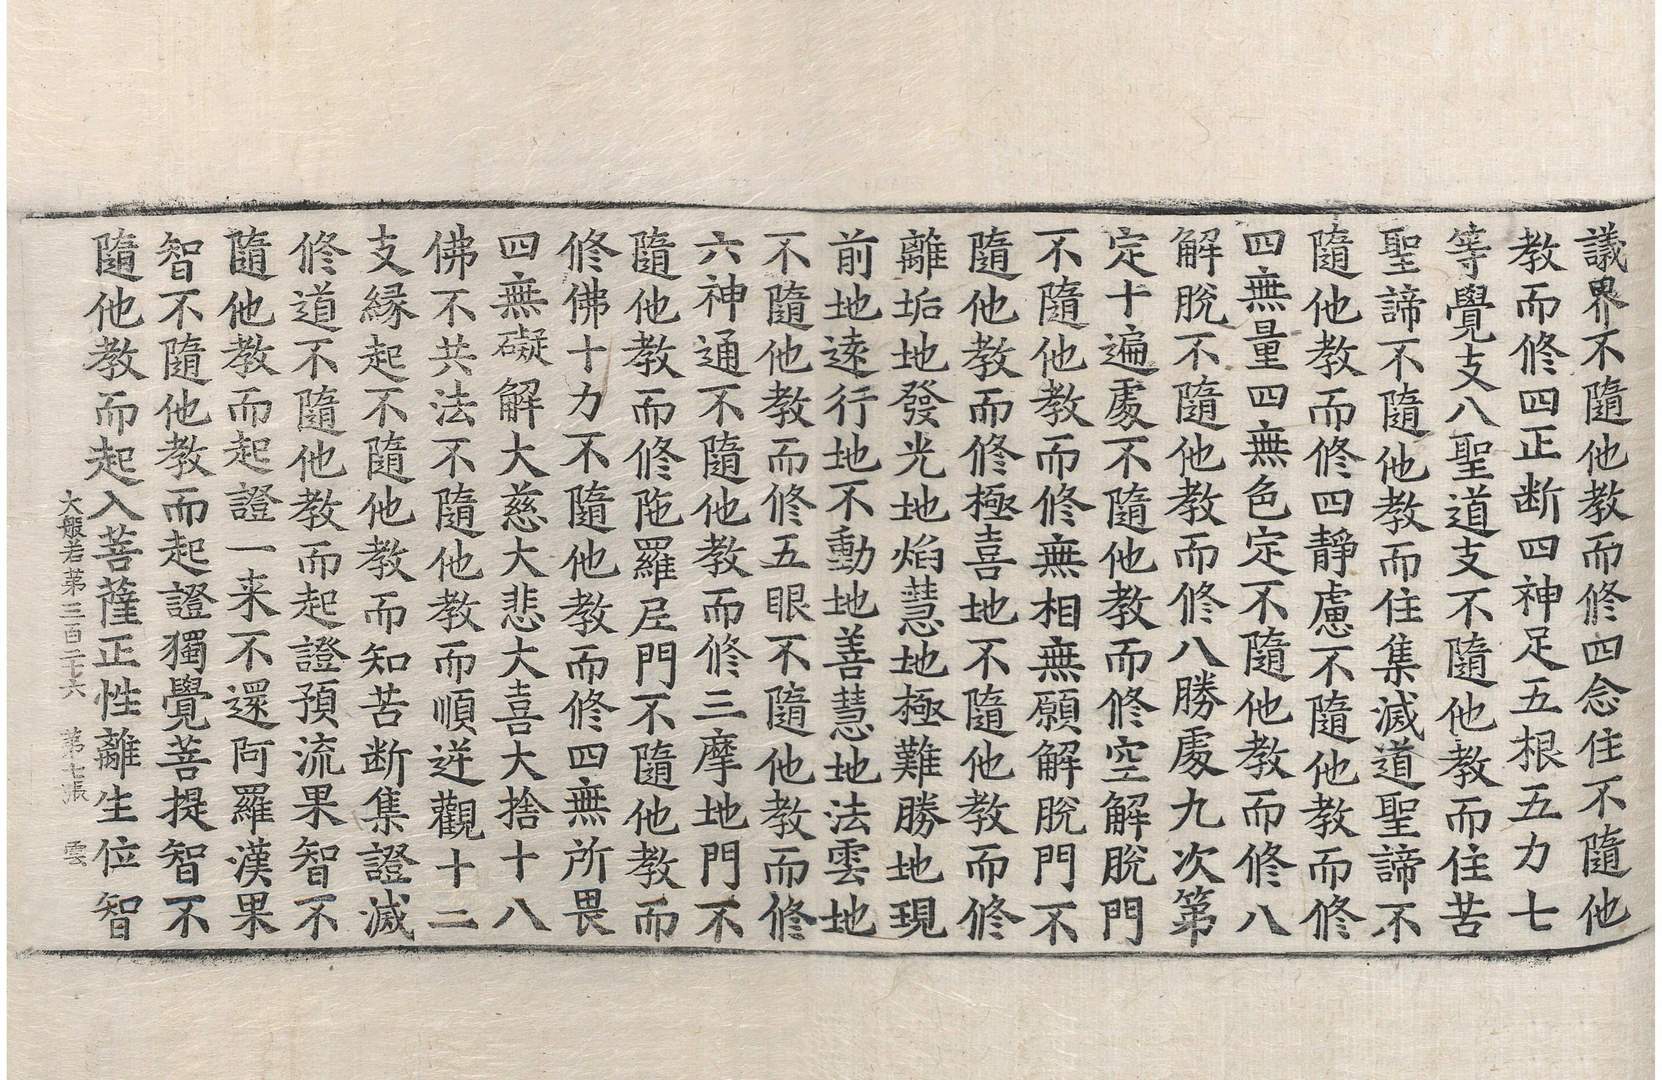 議界不隨他教而修四念住不隨他
教而修四正断四神足五根五力七
等覺支八聖道支不隨他教而住苦
聖諦不隨他教而住集滅道聖諦不
隨他教而修四靜慮不隨他教而修
四無量四無色定不隨他教而修八
解脫不隨他教而修八勝處九次第
定十遍處不隨他教而修空解脫門
不隨他教而修無相無願解脫門不
隨他教而修極喜地不隨他教而修
離垢地發光地焰慧地極難勝地現
前地遠行地不動地善慧地法雲地
不隨他教而修五眼不隨他教而修
六神通不隨他教而修三摩地門不
隨他教而修陁羅尼門不隨他教而
修佛十力不隨他教而修四無所畏
四無礙解大慈大悲大喜大捨十八
佛不共法不隨他教而順逆觀十二
支縁起不隨他教而知苦断集證滅
修道不隨他教而起證預流果智不
隨他教而起證一来不還阿羅漢果
智不隨他教而起證獨覺菩提智不
隨他教而起入菩薩正性離生位智
大般若第三百二十六　第七張　雲